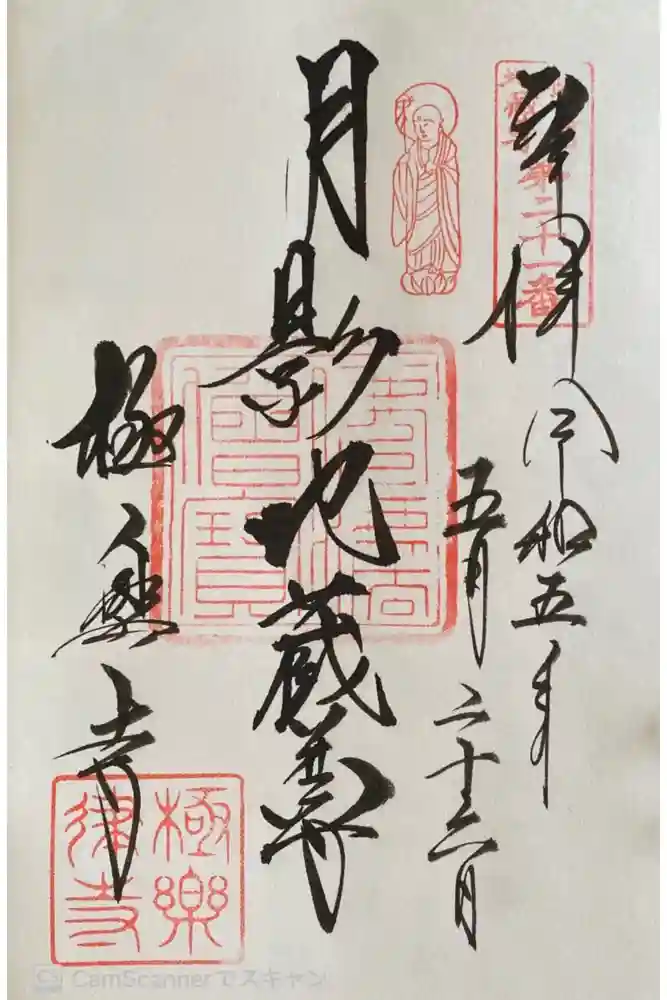 奉拝 令和五年
五月二十六日
第二十一番
月影地蔵尊
佛法僧寶
極樂寺
極樂
律寺
CamScannerでスキャン